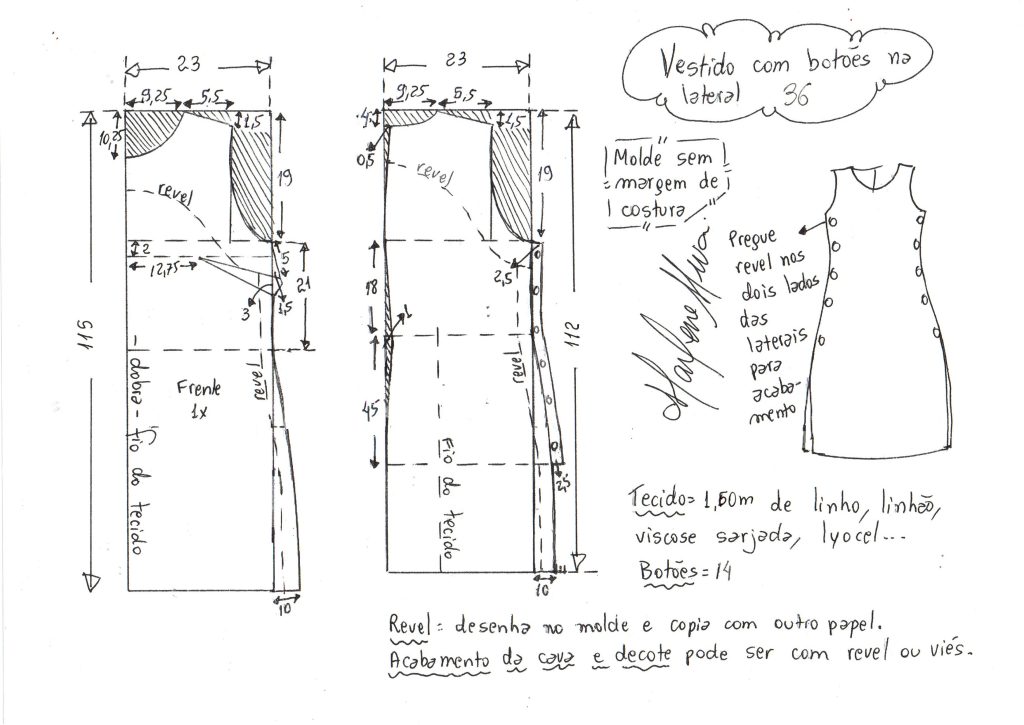 Vestido com botões na
lateral 36
Molde sem
margem de
costura
Marlene Mukai
Pregue
revel nos
dois lados
das
laterais
para
acaba-
mento
Tecido = 1,50m de linho, linhão,
viscose sarjada, lyocel...
Botões = 14
Revel = desenha no molde e copia com outro papel.
Acabamento da cava e decote pode ser com revel ou viés.
23
9,25
5,5
10,25
1,5
19
revel
2
12,75
5
21
1,5
3
115
Frente
1x
revel
dobra - fio do tecido
10
23
9,25
5,5
4
1,5
0,5
revel
19
2,5
18
1
112
revel
45
Fio do tecido
2,5
10